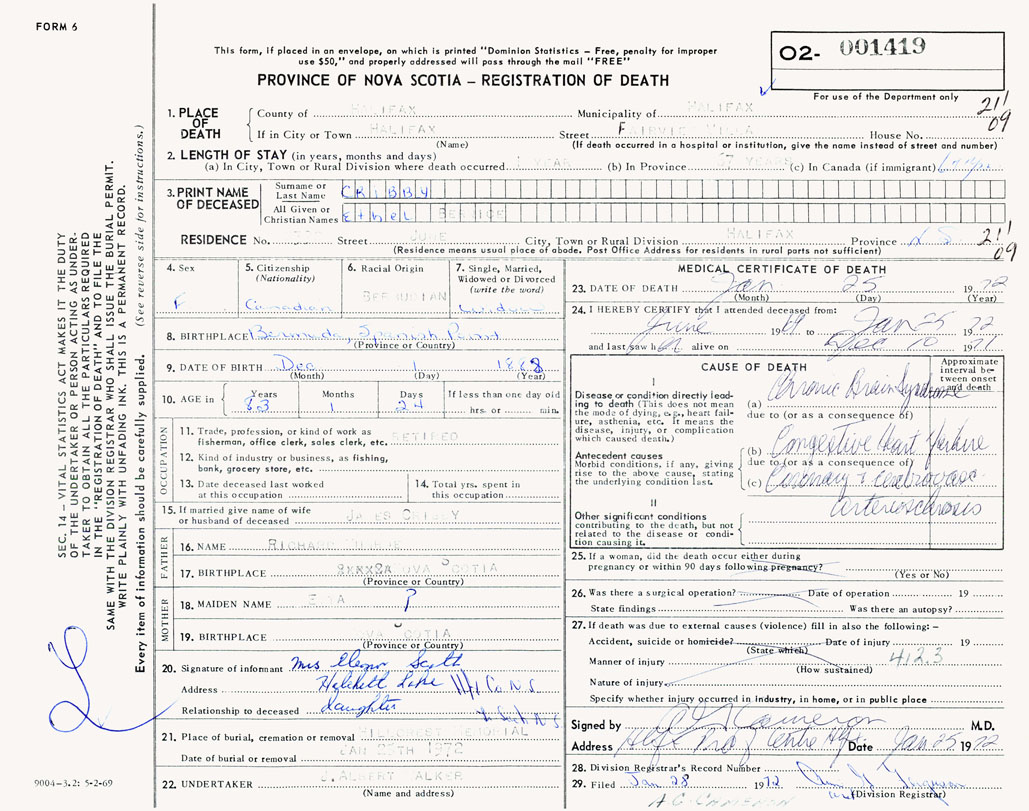 FORM 6
This form, if placed in an envelope, on which is printed "Dominion Statistics – Free, penalty for improper
use $50," and properly addressed will pass through the mail "FREE"
PROVINCE OF NOVA SCOTIA – REGISTRATION OF DEATH
O2- 001419
For use of the Department only
211
09
1. PLACE OF DEATH
County of HALIFAX Municipality of HALIFAX
If in City or Town HALIFAX Street FAIRVIEW VILLA House No.
(Name) (If death occurred in a hospital or institution, give the name instead of street and number)
2. LENGTH OF STAY (in years, months and days)
(a) In City, Town or Rural Division where death occurred 1 YEAR (b) In Province 67 YEARS (c) In Canada (if immigrant)
3. PRINT NAME OF DECEASED
Surname or Last Name CRIBBY
All Given or Christian Names Ethel BERNICE
RESIDENCE No. Street JUNE City, Town or Rural Division HALIFAX Province N.S. 211
(Residence means usual place of abode. Post Office Address for residents in rural parts not sufficient) 09
4. Sex F
5. Citizenship (Nationality) Canadian
6. Racial Origin BERMUDIAN
7. Single, Married, Widowed or Divorced (write the word) Widow
8. BIRTHPLACE Bermuda, Spanish Point
(Province or Country)
9. DATE OF BIRTH Dec 1 1888
(Month) (Day) (Year)
10. AGE in Years 83 Months 1 Days 24 If less than one day old hrs. or min.
OCCUPATION
11. Trade, profession, or kind of work as fisherman, office clerk, sales clerk, etc. RETIRED
12. Kind of industry or business, as fishing, bank, grocery store, etc.
13. Date deceased last worked at this occupation
14. Total yrs. spent in this occupation
15. If married give name of wife or husband of deceased
FATHER
16. NAME RICHARD
17. BIRTHPLACE NOVA SCOTIA
(Province or Country)
MOTHER
18. MAIDEN NAME ?
19. BIRTHPLACE NOVA SCOTIA
(Province or Country)
20. Signature of informant Mrs Elenor Scott
Address Hatchett Lake Hfx Co N.S.
Relationship to deceased daughter
21. Place of burial, cremation or removal MEMORIAL
Date of burial or removal JAN 28TH 1972
22. UNDERTAKER J. ALBERT WALKER
(Name and address)
MEDICAL CERTIFICATE OF DEATH
23. DATE OF DEATH Jan 25 1972
(Month) (Day) (Year)
24. I HEREBY CERTIFY that I attended deceased from:
June 19 Jan 25 1972
and last saw her alive on Dec 10 1971
CAUSE OF DEATH
Approximate interval between onset and death
I
Disease or condition directly leading to death (This does not mean the mode of dying, e.g., heart failure, asthenia, etc. It means the disease, injury, or complication which caused death.)
(a) Chronic Brain Syndrome
due to (or as a consequence of)
Antecedent causes
Morbid conditions, if any, giving rise to the above cause, stating the underlying condition last.
(b) Congestive Heart Failure
due to (or as a consequence of)
(c) Coronary & cerebrovasc.
arteriosclerosis
II
Other significant conditions contributing to the death, but not related to the disease or condition causing it.
25. If a woman, did the death occur either during
pregnancy or within 90 days following pregnancy?
(Yes or No)
26. Was there a surgical operation? Date of operation 19
State findings Was there an autopsy?
27. If death was due to external causes (violence) fill in also the following: –
Accident, suicide or homicide? Date of injury 19
(State which)
Manner of injury 412.3
(How sustained)
Nature of injury
Specify whether injury occurred in industry, in home, or in public place
Signed by Cameron M.D.
Address Hlfx Prof Centre Hfx Date Jan 25 1972
28. Division Registrar's Record Number
29. Filed Jan 28 1972
(Division Registrar)
A G CAMERON
SEC. 14 – VITAL STATISTICS ACT MAKES IT THE DUTY
OF THE UNDERTAKER OR PERSON ACTING AS UNDER-
TAKER TO OBTAIN ALL THE PARTICULARS REQUIRED
IN THE "REGISTRATION OF DEATH" AND TO FILE THE
SAME WITH THE DIVISION REGISTRAR WHO SHALL ISSUE THE BURIAL PERMIT.
WRITE PLAINLY WITH UNFADING INK. THIS IS A PERMANENT RECORD.
Every item of information should be carefully supplied. (See reverse side for instructions.)
9004–3.2: 5-2-69